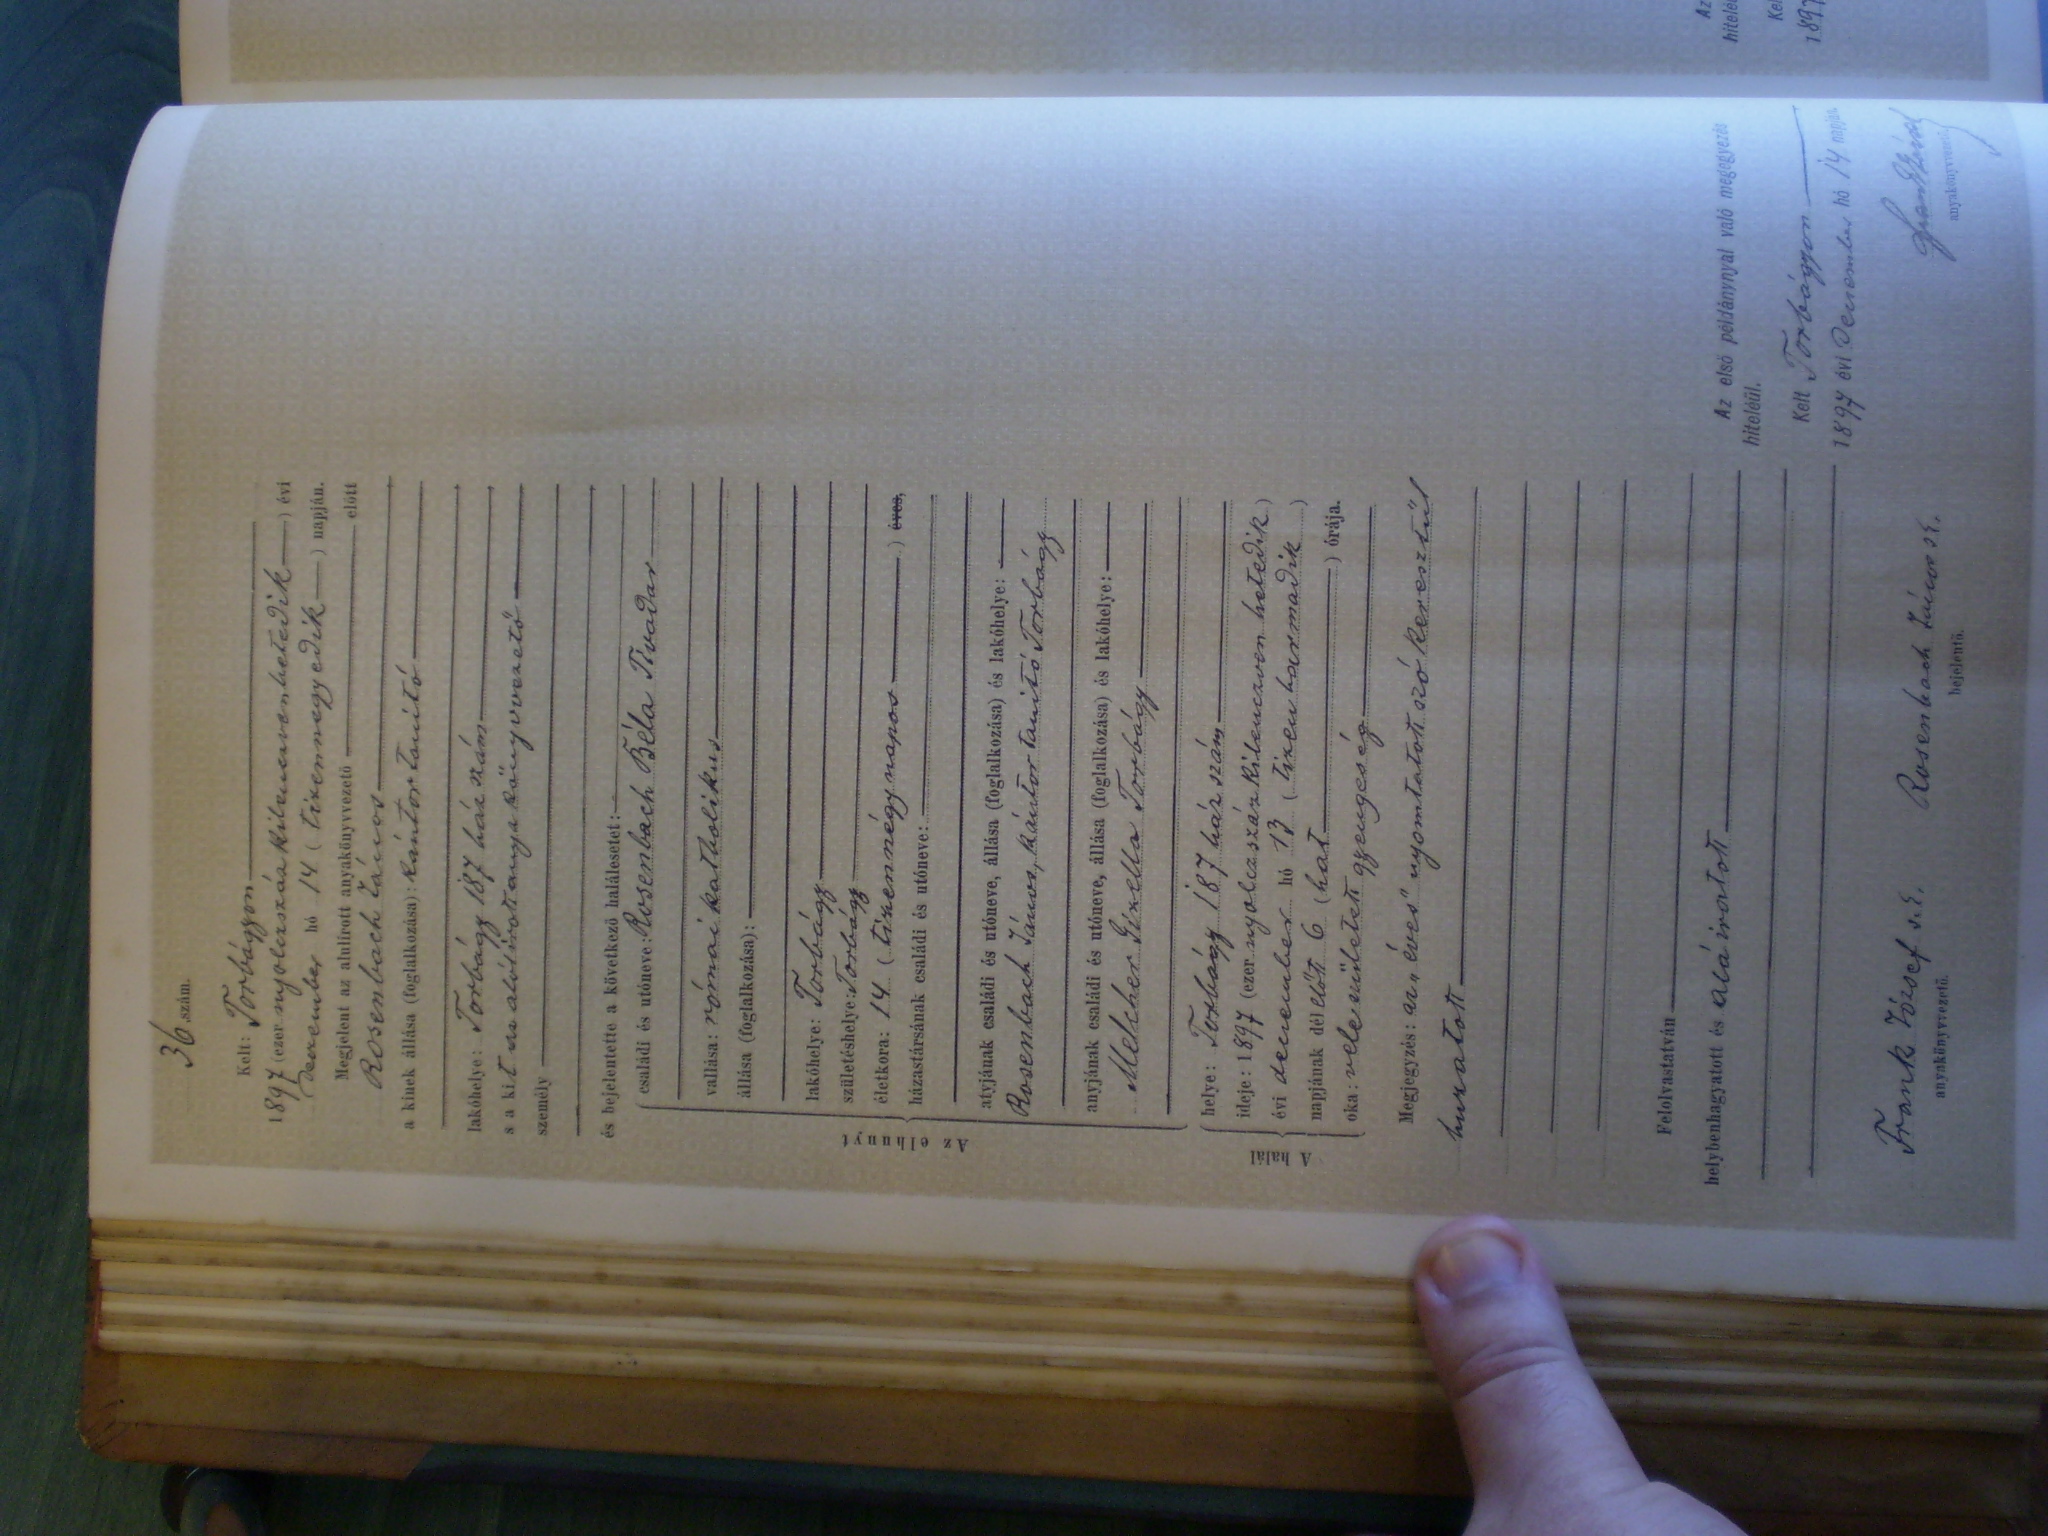 36 szám.
Kelt: Torbágyon
1897 (ezernyolczszázkilenczvenhetedik) évi
Deczember hó 14 (tizennegyedik) napján.
Megjelent az alulirott anyakönyvvezető előtt
Rosenbach János
a kinek állása (foglalkozása): kántortanító
lakóhelye: Torbágy 187 ház szám
s a kit az alólirott anyakönyvvezető
személy
és bejelentette a következő halálesetet:
Az elhunyt
családi és utóneve: Rosenbach Béla Tivadar
vallása: római katholikus
állása (foglalkozása):
lakóhelye: Torbágy
születéshelye: Torbágy
életkora: 14 (tizennégy napos) éves,
házastársának családi és utóneve:
atyjának családi és utóneve, állása (foglalkozása) és lakóhelye:
Rosenbach János, kántor tanító Torbágy
anyjának családi és utóneve, állása (foglalkozása) és lakóhelye:
Melcher Gizella Torbágy
A halál
helye: Torbágy 187 ház szám
ideje: 1897 (ezernyolczszázkilenczvenhetedik)
évi deczember hó 13 (tizenharmadik)
napjának dél előtt 6 (hat) órája.
oka: veleszületett gyengeség
Megjegyzés: az „éves" nyomtatott szó keresztül
huzatott
Felolvastatván
helybenhagyatott és aláiratott
Frank József s.k.
anyakönyvvezető.
Rosenbach János s.k.
bejelentő.
Az első példánynyal való megegyezés
hiteléül.
Kelt Torbágyon
1897 évi Deczember hó 14 napján.
Frank József
anyakönyvvezető
Az
hitelé
Kel
1897